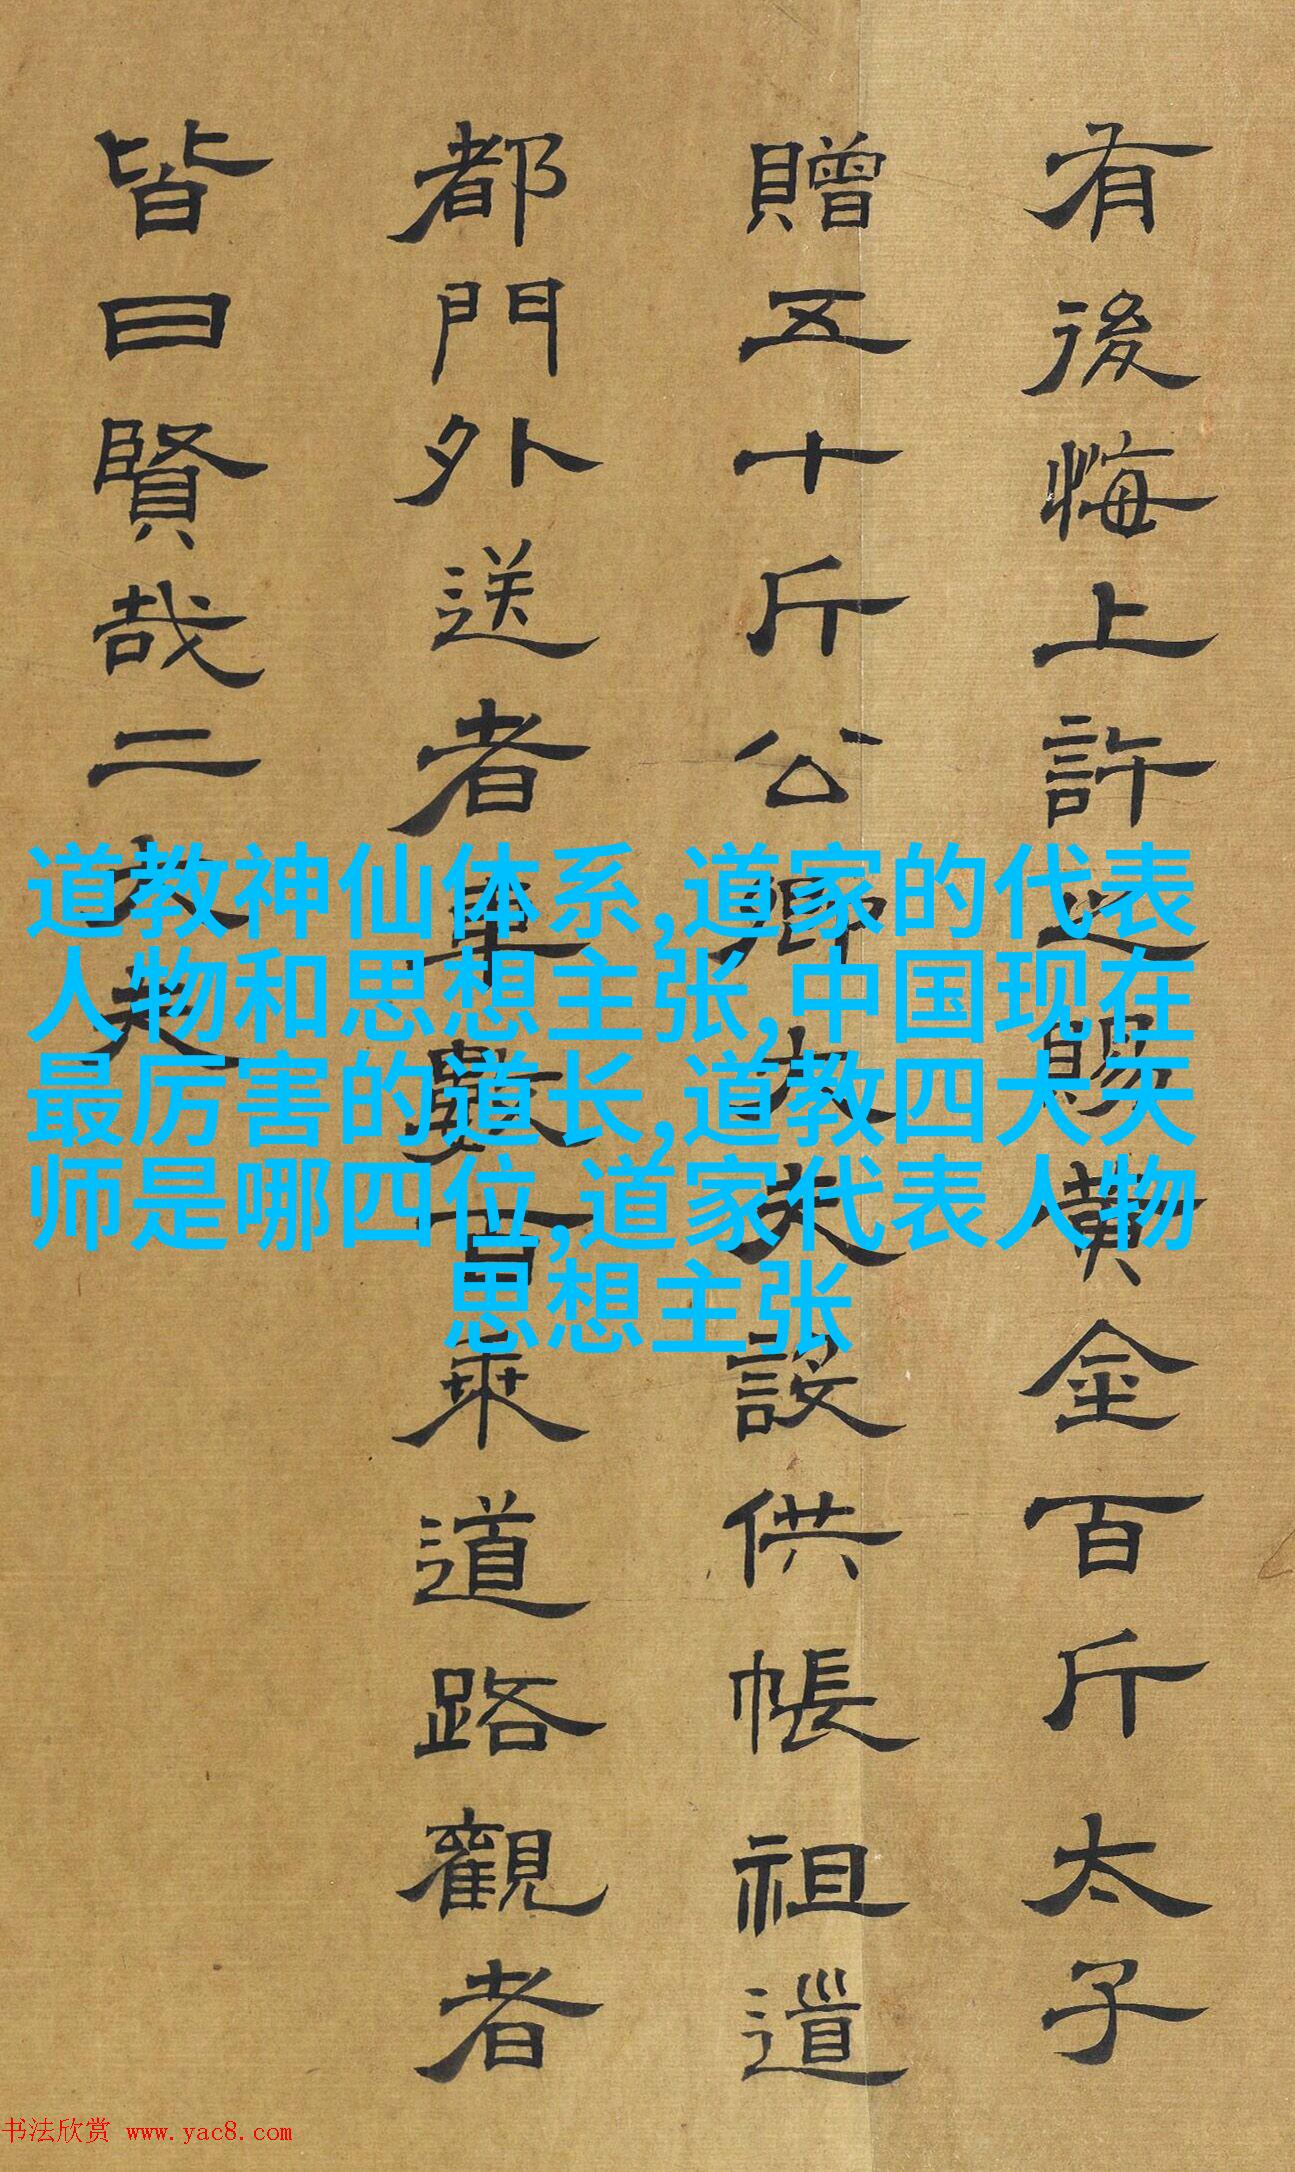 有後悔上許之賜黃金百斤太子
贈五十斤公卿大夫設供帳祖道
都門外送者車數百乘道路觀者
皆曰賢哉二大夫
道教神仙体系,道家的代表
人物和思想主张,中国现在
最厉害的道长,道教四大天
师是哪四位,道家代表人物
思想主张
书法欣赏 www.yac8.com